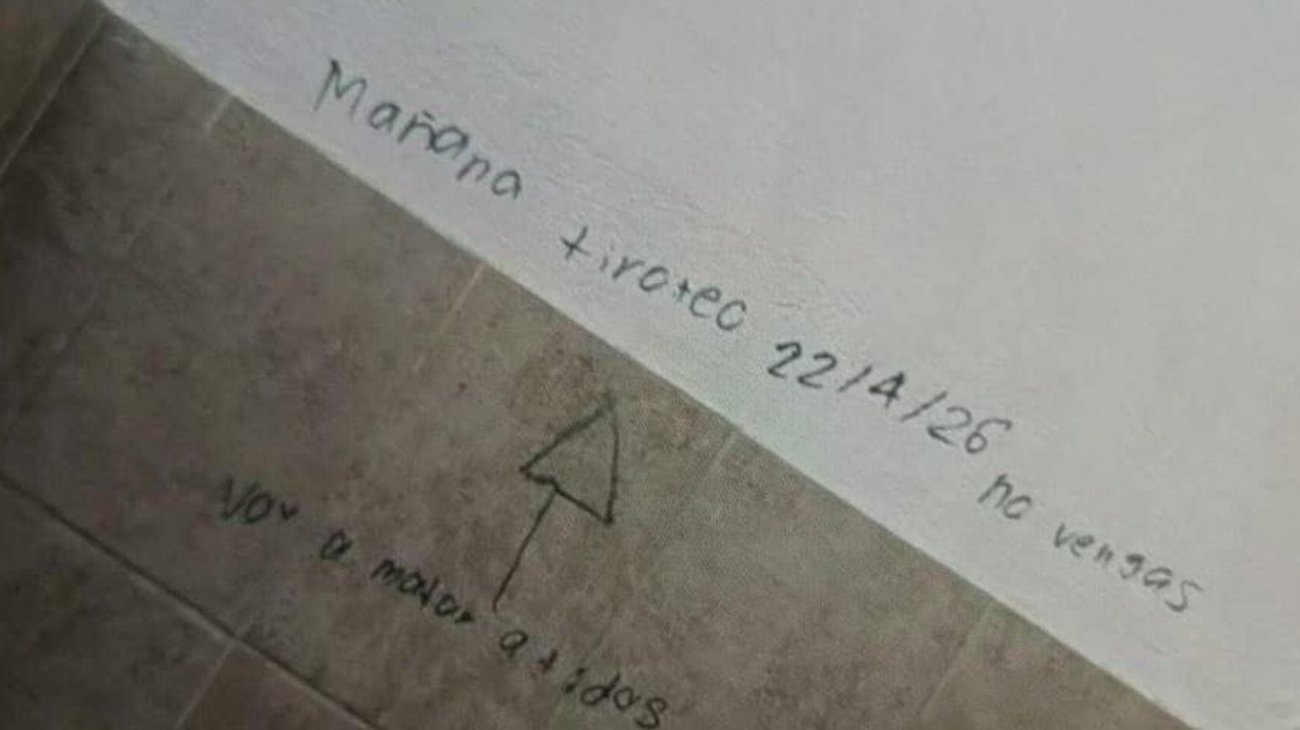 Mañana tiroteo 22/4/26 no vengas
Voy a matar a todos